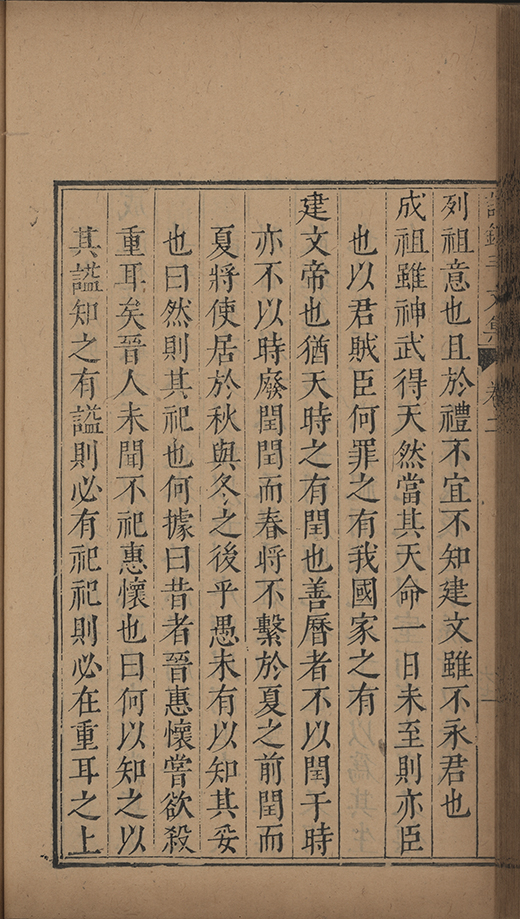 列祖意也且於禮不宜不知建文雖不永君也
成祖雖神武得天然當其天命一日未至則亦臣
也以君賊臣何罪之有我國家之有
建文帝也猶天時之有閏也善曆者不以閏于時
亦不以時廢閏閏而春將不繫於夏之前閏而
夏將使居於秋與冬之後乎愚未有以知其妥
也曰然則其祀也何據曰昔者晉惠懷嘗欲殺
重耳矣晉人未聞不祀惠懷也曰何以知之以
其謚知之有謚則必有祀祀則必在重耳之上